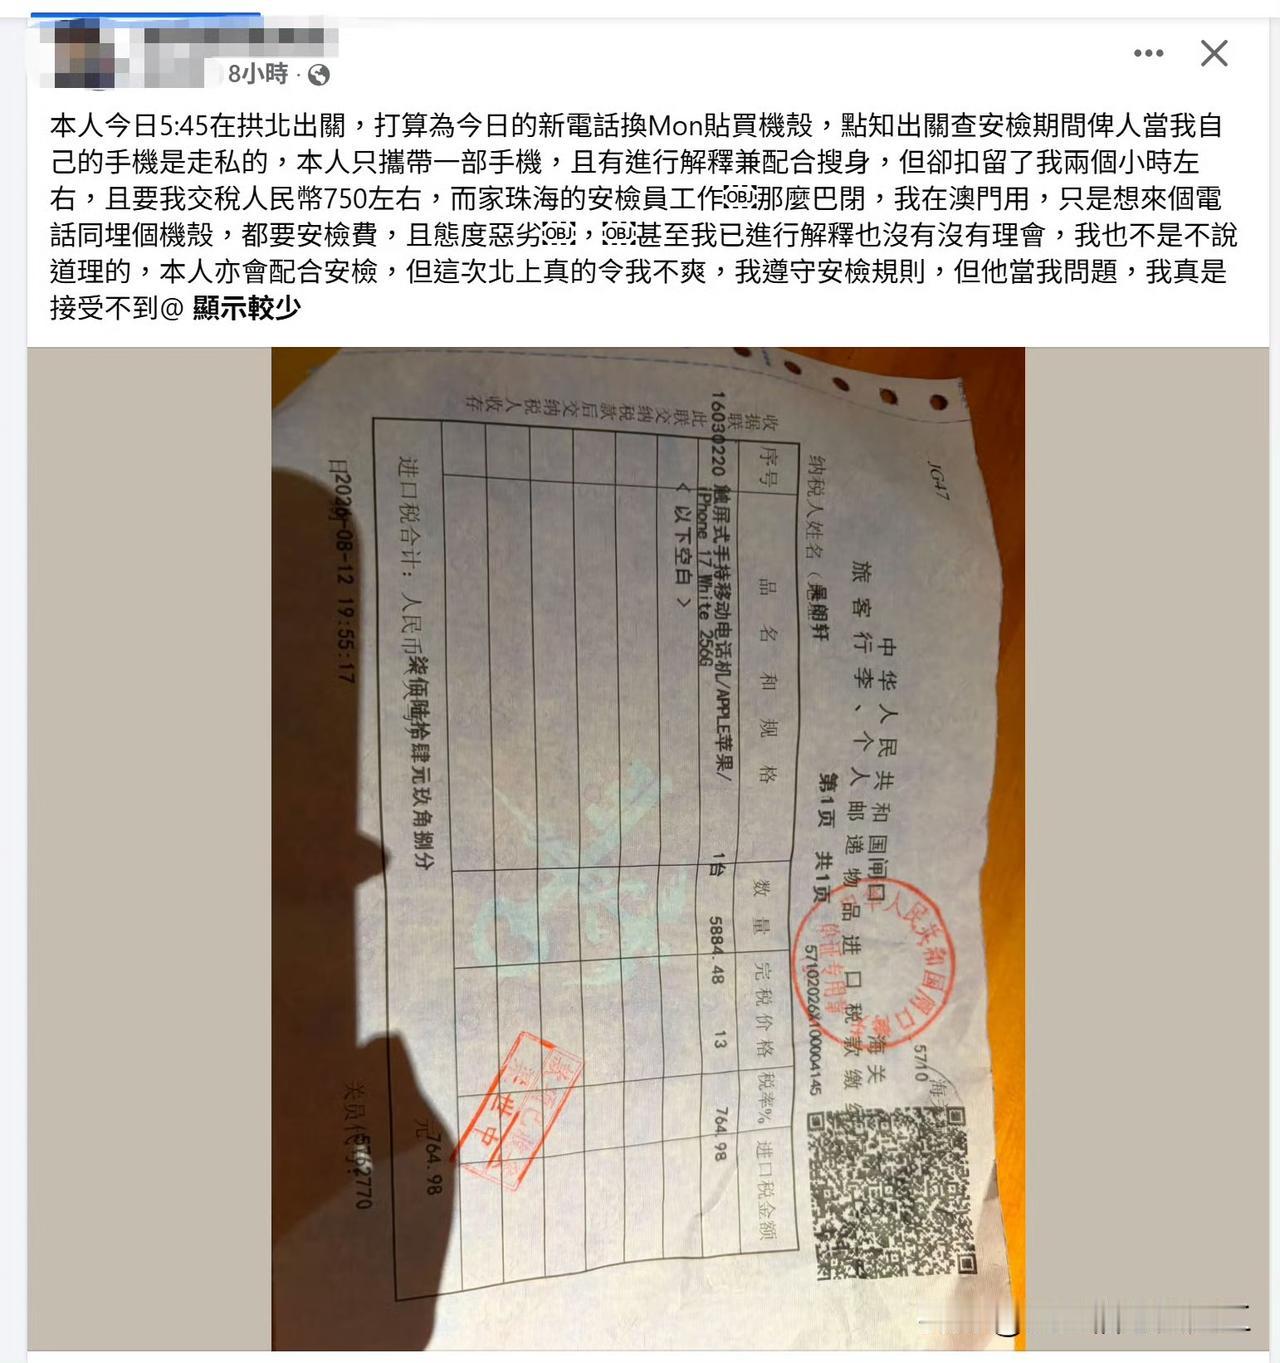 8小時
本人今日5:45在拱北出關，打算為今日的新電話換Mon貼買機殼，點知出關查安檢期間俾人當我自
己的手機是走私的，本人只攜帶一部手機，且有進行解釋兼配合搜身，但卻扣留了我兩個小時左
右，且要我交稅人民幣750左右，而家珠海的安檢員工作￼那麼巴閉，我在澳門用，只是想來個電
話同埋個機殼，都要安檢費，且態度惡劣￼，￼甚至我已進行解釋也沒有沒有理會，我也不是不說
道理的，本人亦會配合安檢，但這次北上真的令我不爽，我遵守安檢規則，但他當我問題，我真是
接受不到@ 顯示較少
JG47
中华人民共和国闸口海关
5710
旅客行李、个人邮递物品进口税款缴
第1页 共1页
纳税人姓名（吴朗轩
57102026X100004145
序号 品名和规格 数量 完税价格 税率% 进口税金额
16030220 触屏式手持移动电话机/APPLE苹果/ 1台 5884.48 13 764.98
iPhone 17 White 256G
< 以下空白 >
进口税合计：人民币柒佰陆拾肆元玖角捌分
元764.98
日期2026-08-12 19:55:17
关员代号5762770
收据联 此联交纳税款后交纳税人收存
单证专用章